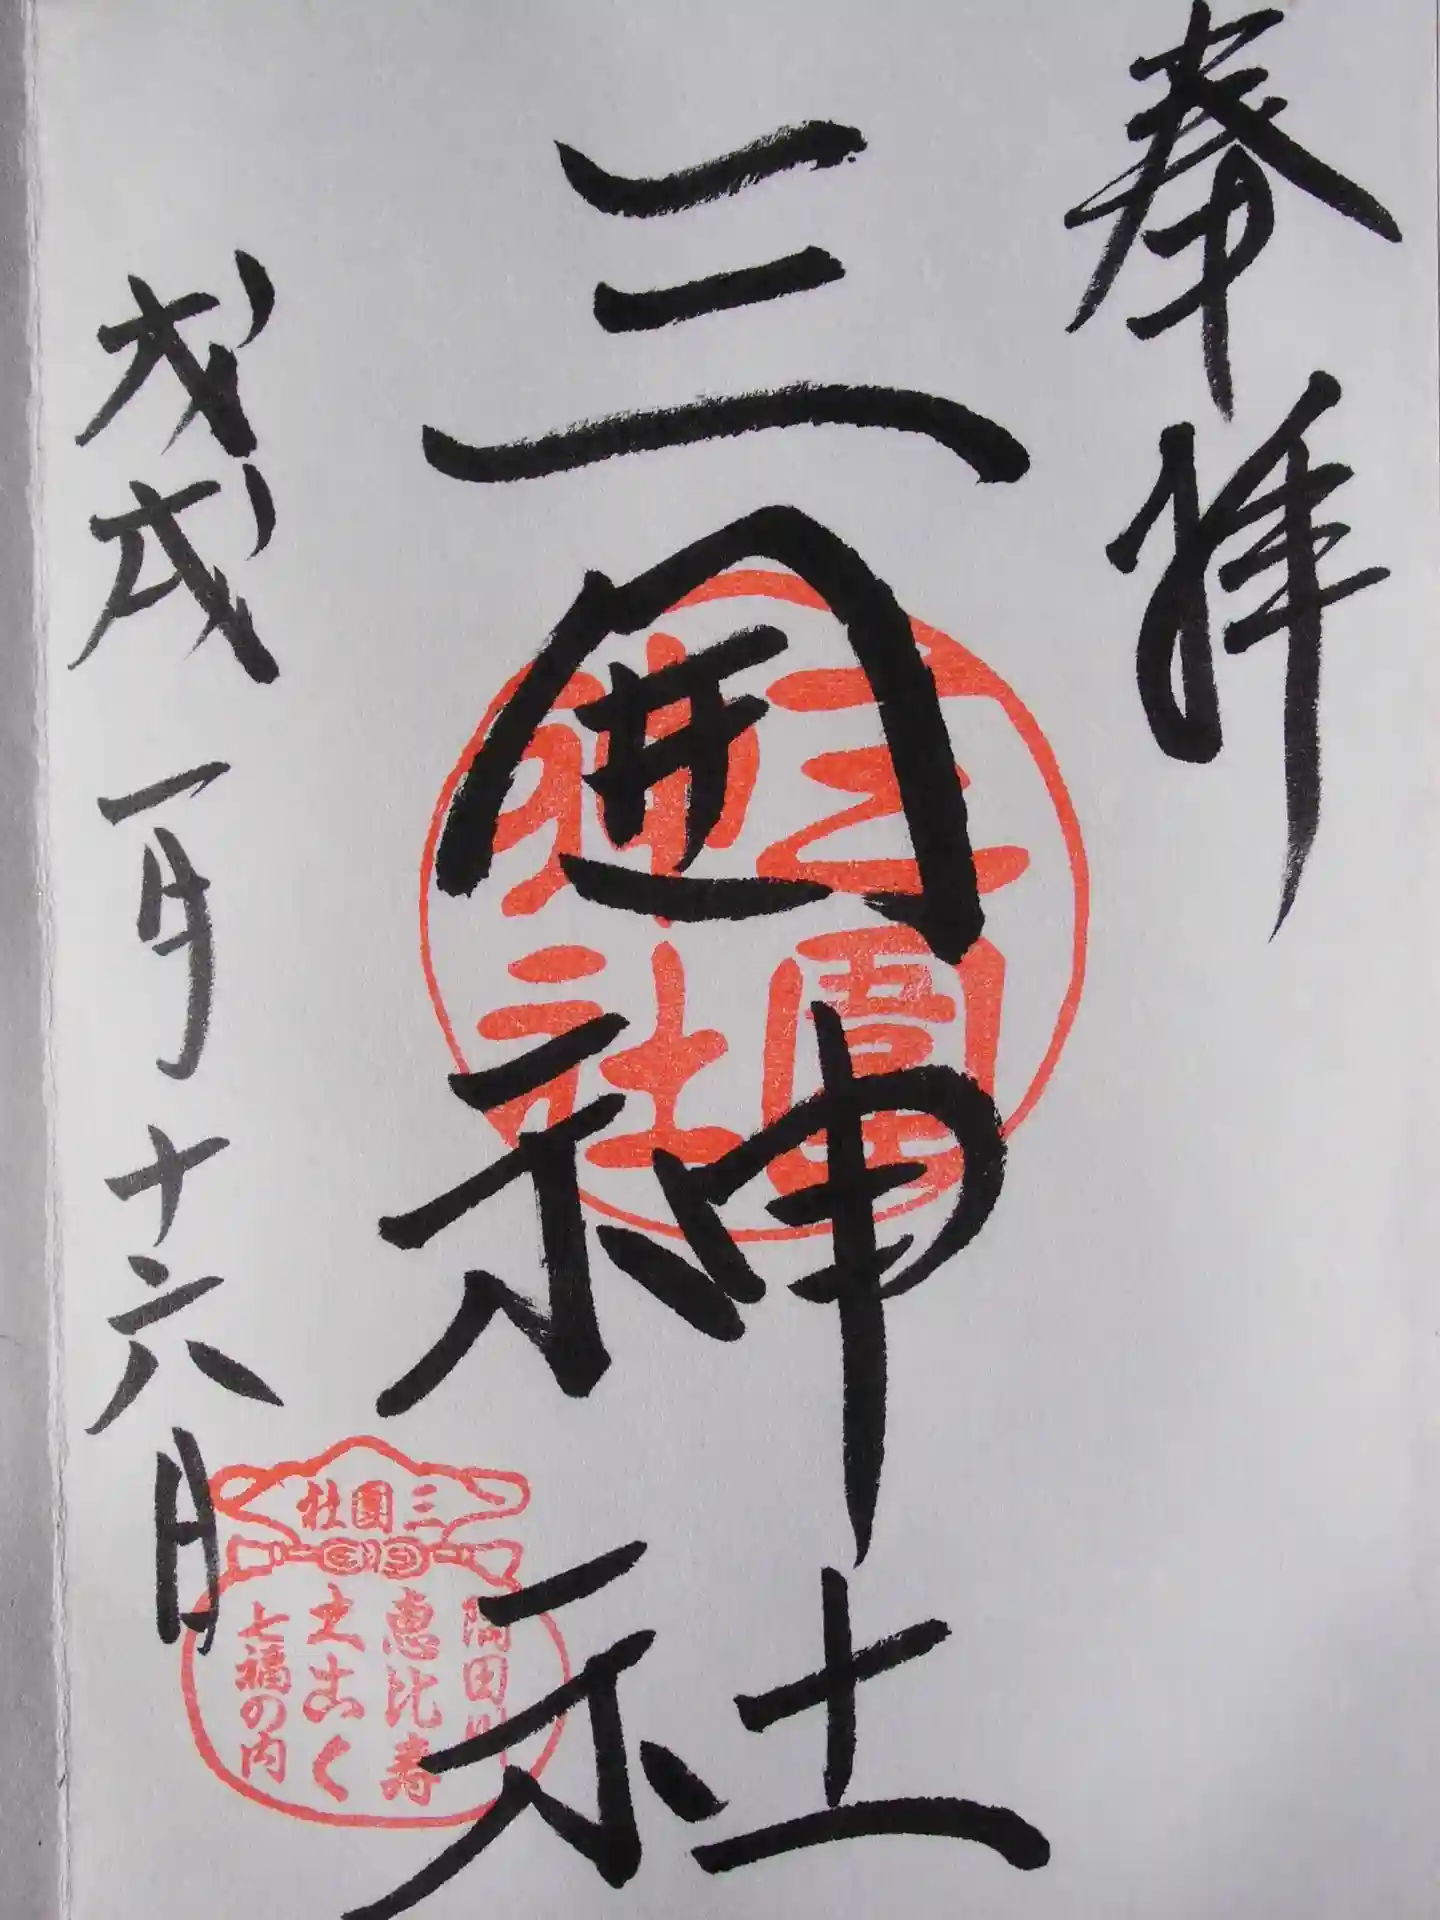 奉拝
三囲神社
三圍神社
戊戌一月十六日
三圍社
隅田川
恵比寿
大こく
七福の内